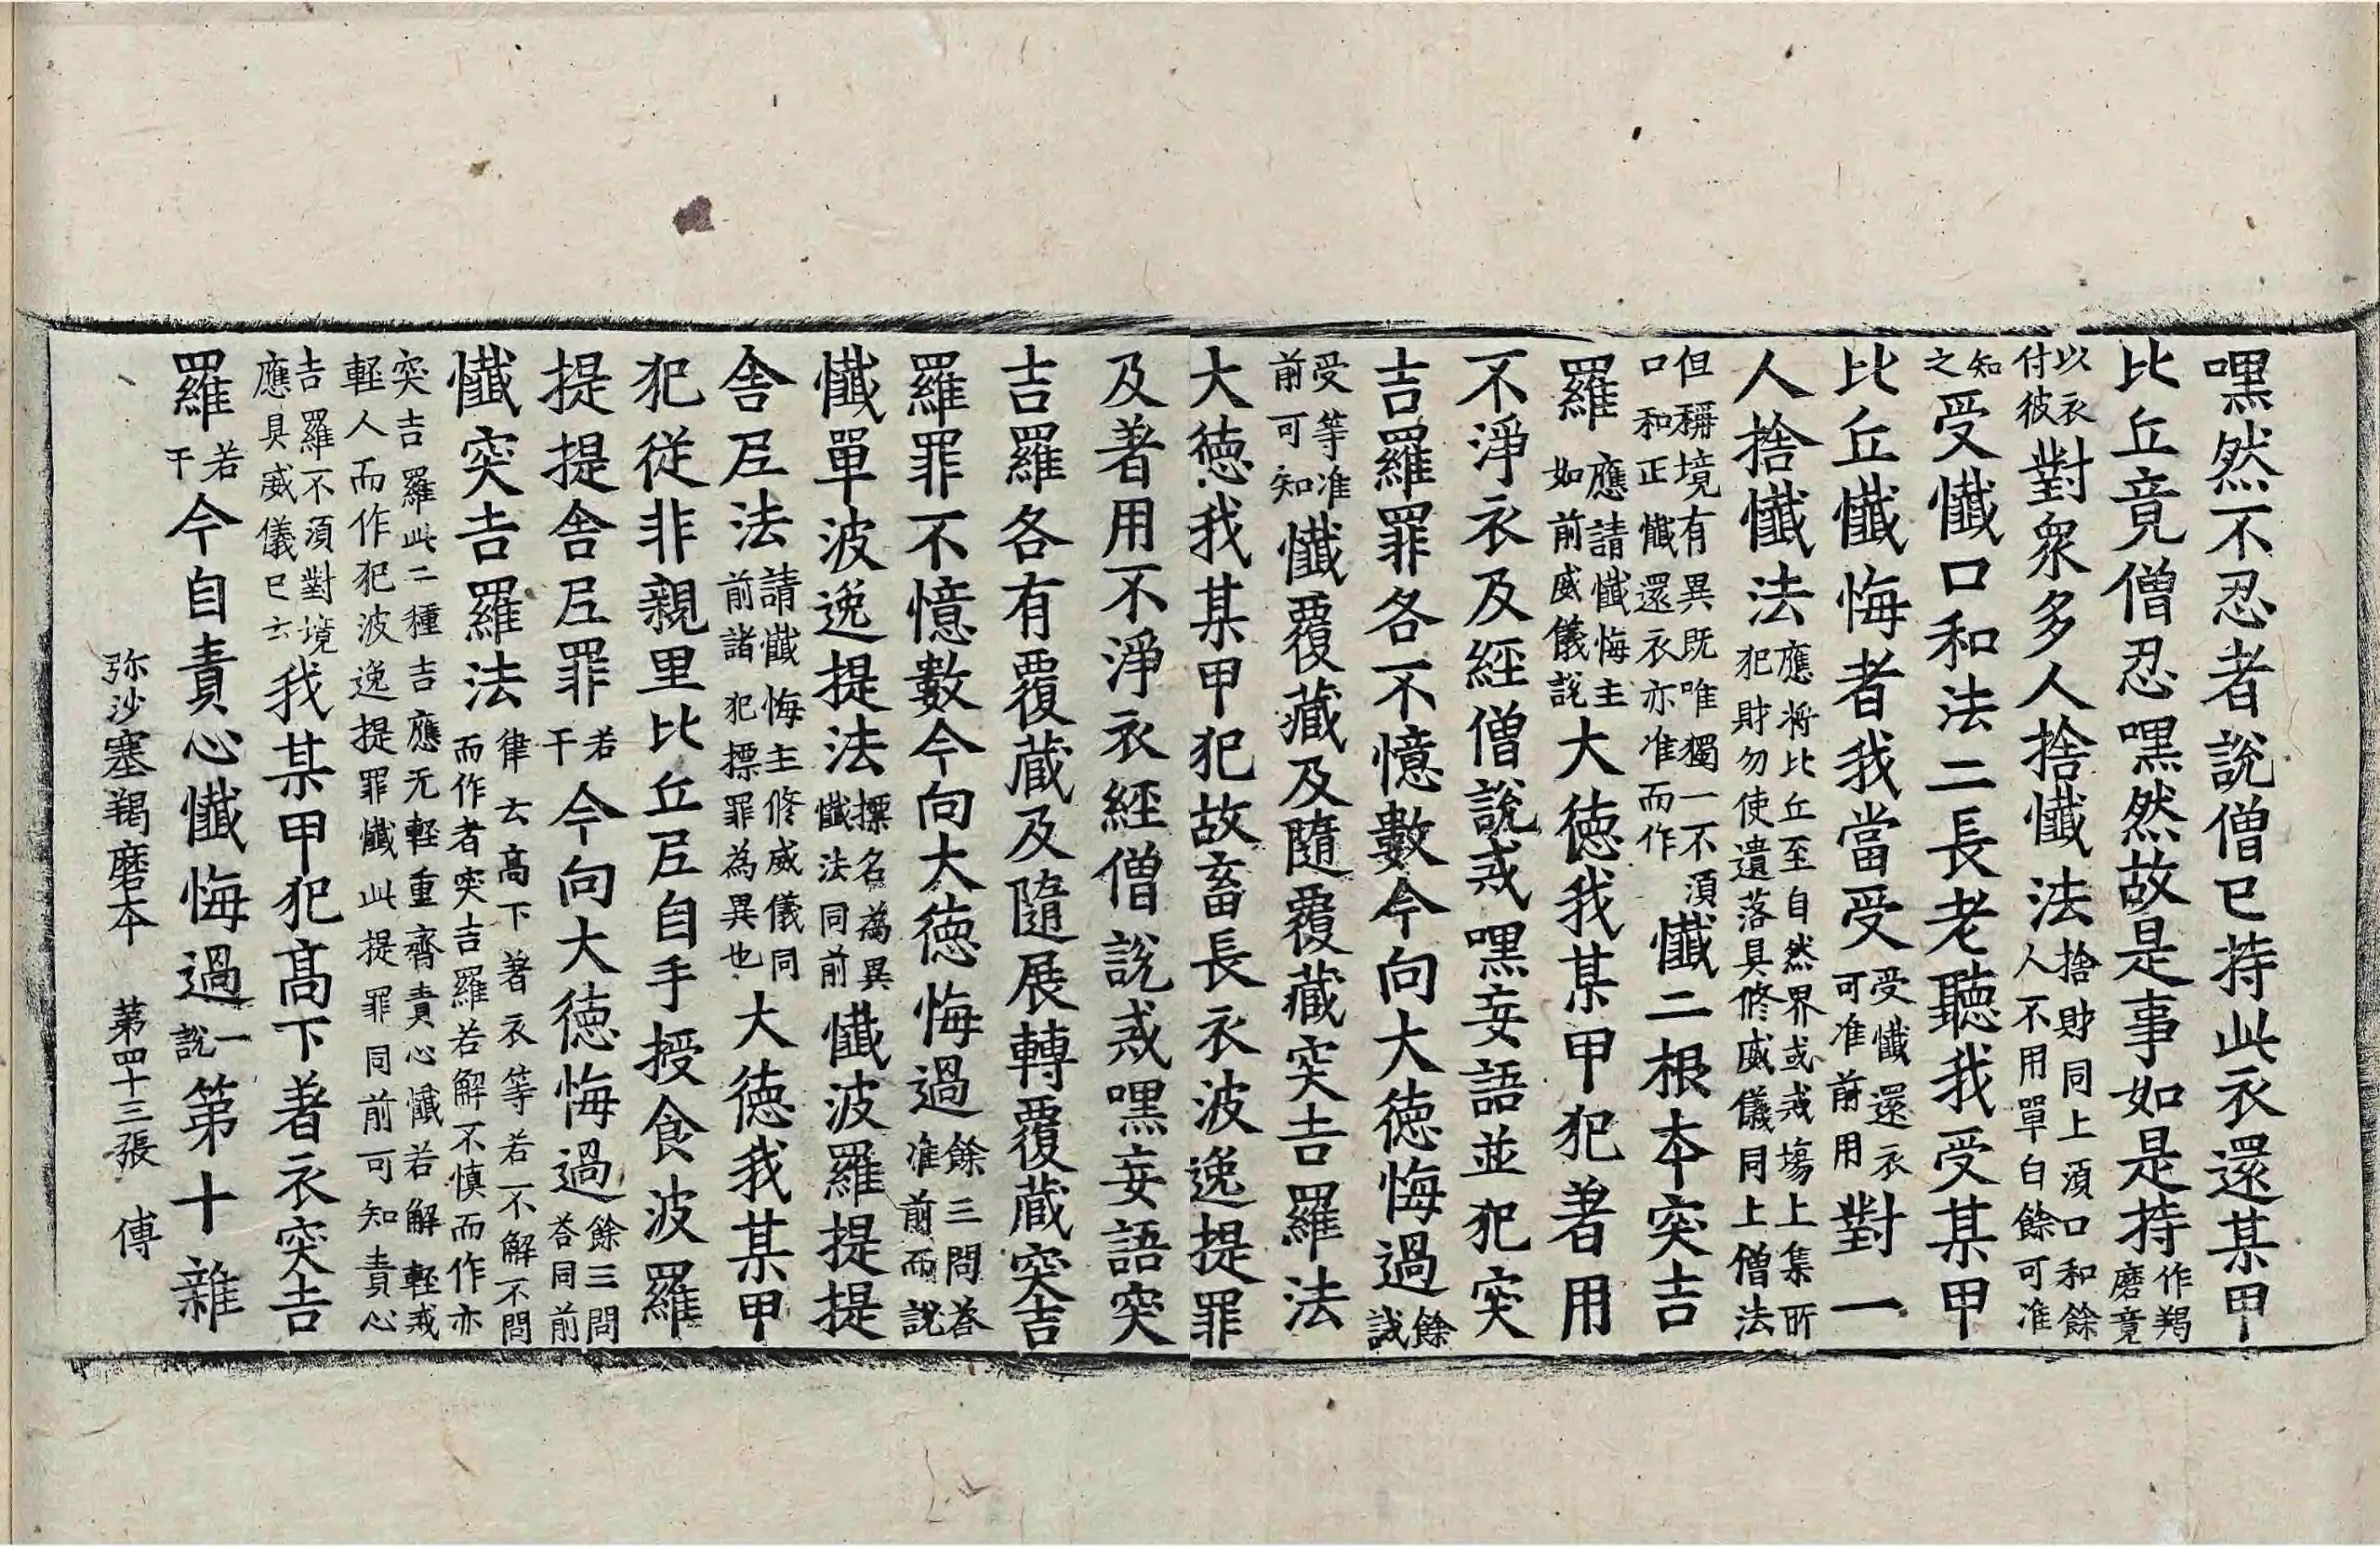 嘿然不忍者說僧已持此衣還某甲
比丘竟僧忍嘿然故是事如是持作羯磨竟
以衣付彼對衆多人捨懺法捨財同上湏口和餘人不用單白餘可准
知之受懺口和法二長老聽我受某甲
比丘懺悔者我當受受懺還衣可准前用對一
人捨懺法應将比丘至自然界或戒塲上集所犯財勿使遺落具修威儀同上僧法
但稱境有異既唯獨一不湏口和正懺還衣亦准而作懺二根本突吉
羅應請懺悔主如前威儀說大徳我某甲犯著用
不淨衣及經僧說戒嘿妄語並犯突
吉羅罪各不憶數今向大徳悔過餘誡
受等准前可知懺覆藏及隨覆藏突吉羅法
大徳我某甲犯故畜長衣波逸提罪
及著用不淨衣經僧說戒嘿妄語突
吉羅各有覆藏及隨展轉覆藏突吉
羅罪不憶數今向大徳悔過餘三問荅准前而說
懺單波逸提法摽名為異懺法同前懺波羅提提
舍尼法請懺悔主修威儀同前諸犯摽罪為異也大徳我某甲
犯從非親里比丘尼自手授食波羅
提提舍尼罪若干今向大徳悔過餘三問荅同前
懺突吉羅法律云高下著衣等若不解不問而作者突吉羅若解不慎而作亦
突吉羅此二種吉應无輕重齊責心懺若解輕戒輕人而作犯波逸提罪懺此提罪同前可知責心
吉羅不湏對境應具威儀已云我某甲犯髙下著衣突吉
羅若干今自責心懺悔過一說第十雜
弥沙塞羯磨本 第四十三張 傅